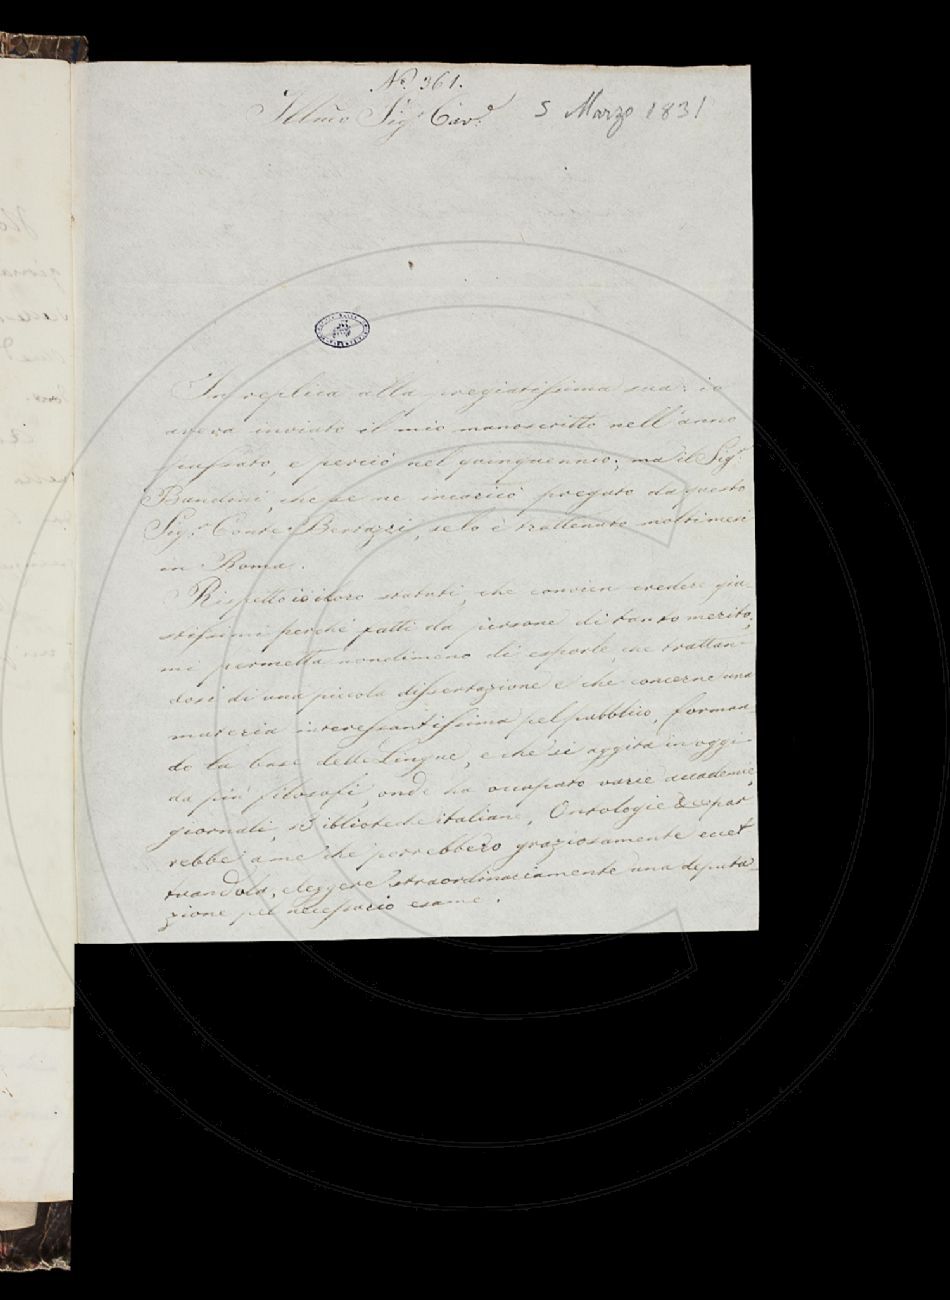 N.º 361.
Illmo Sigr Cavr.e 5 Marzo 1831
In replica alla pregiatissima sua: io
aveva inviato il mio manoscritto nell'anno
passato, e perciò nel quinquennio; ma il Sigr.
Bandini, che se ne incaricò pregato da questo
Sigr. Conte Bertazzi, se lo è trattenuto molti mesi
in Roma.
Rispetto ai loro statuti, che convien credere giu-
stissimi perché fatti da persone di tanto merito,
mi permetta nondimeno di esporle, che trattan-
dosi di una piccola dissertazione e che concerne una
materia interessantissima pel pubblico, forman-
do la base delle Lingue, e che si aggita in oggi
da più filosofi, onde ha occupato varie accademie,
giornali, Biblioteche italiane, Ontologie &c. par-
rebbe a me che potrebbero graziosamente eccet-
tuandola, eleggere straordinariamente una deputa-
zione pel necessario esame.